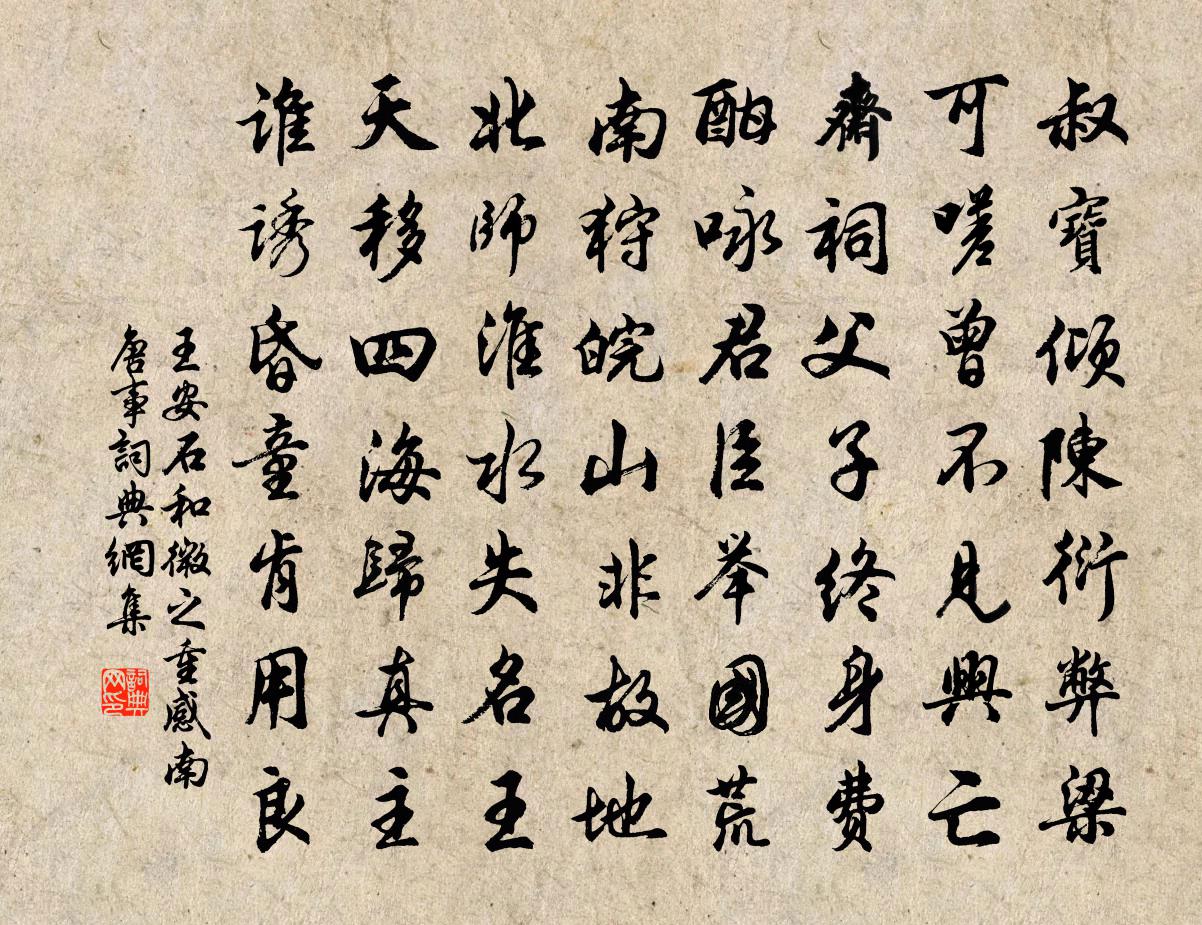 叔寶傾陳衍弊梁
可嗟曾不見興亡
齋祠父子終身費
酣咏君臣舉國荒
南狩皖山非故地
北師淮水失名王
天移四海歸真主
誰誘昏童肯用良
王安石和微之重感南
唐事詞典網集
詞典网印